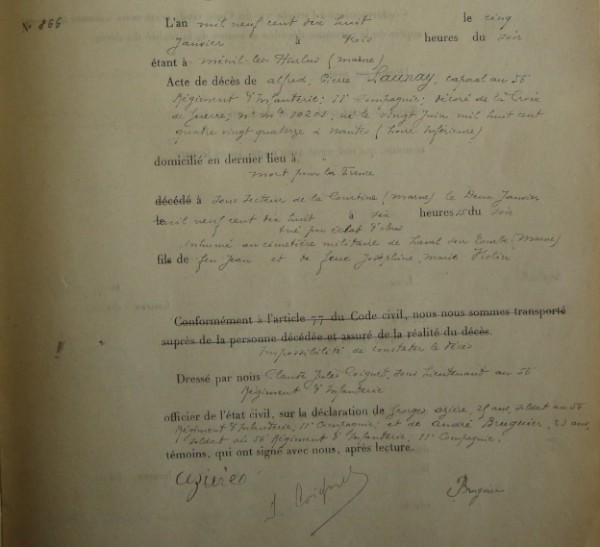 N° 866
L'an mil neuf cent dix huit le cinq
Janvier à trois heures du soir
étant à mesnil les Hurlus (marne)
Acte de décès de alfred, Pierre Launay, caporal au 56
Régiment d'Infanterie; 11e Compagnie; décoré de la Croix
de Guerre; N° mle 10201; né le vingt Juin mil huit cent
quatre vingt quatorze à nantes (Loire Inférieure)
domicilié en dernier lieu à
mort pour la France
décédé à Sous Secteur de la Courtine (marne) le Deux Janvier
mil neuf cent dix huit à six heures du soir
tué par éclat d'obus
inhumé au cimetière militaire de Laval sur Tourbe (Marne)
fils de feu Jean et de feue Joséphine, Marie
Conformément à l'article 77 du Code civil, nous nous sommes transporté
auprès de la personne décédée et assuré de la réalité du décès.
impossibilité de constater le décès
Dressé par nous Claude Jules Coignet, Sous Lieutenant au 56
Régiment d'Infanterie
officier de l'état civil, sur la déclaration de Georges azière, 21 ans, soldat au 56
Régiment d'Infanterie, 11e Compagnie; et de andré Bruguier, 23 ans,
soldat au 56 Régiment d'Infanterie, 11e Compagnie,
témoins, qui ont signé avec nous, après lecture.
J. Coignet